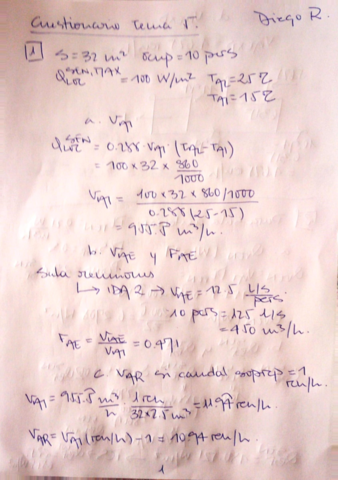 Cuestionario tema 5. Diego R.
1 S = 32 m² ocup = 10 pers
Q_LOC^SEN,MAX = 100 W/m² T_A2 = 25ºC
T_A1 = 15ºC
a. V_A1
Q_LOC^SEN = 0.288 · V_A1 · (T_A2 - T_A1)
= 100 × 32 × 860/1000
V_A1 = 100 × 32 × 860/1000 / 0.288 (25-15)
= 955.5 m³/h.
b. V_AE y F_AE
Sala reuniones
↳ IDA 2 → V_AE = 12.5 l/s pers.
10 pers = 125 l/s
= 450 m³/h.
F_AE = V_AE/V_A1 = 0.471
c. V_AR si caudal = 1 ren/h.
V_A1 = 955.5 m³/h · 1 ren/32×2.5 m³ = 11.94 ren/h.
V_AR = V_A1 (ren/h) - 1 = 10.94 ren/h.
1